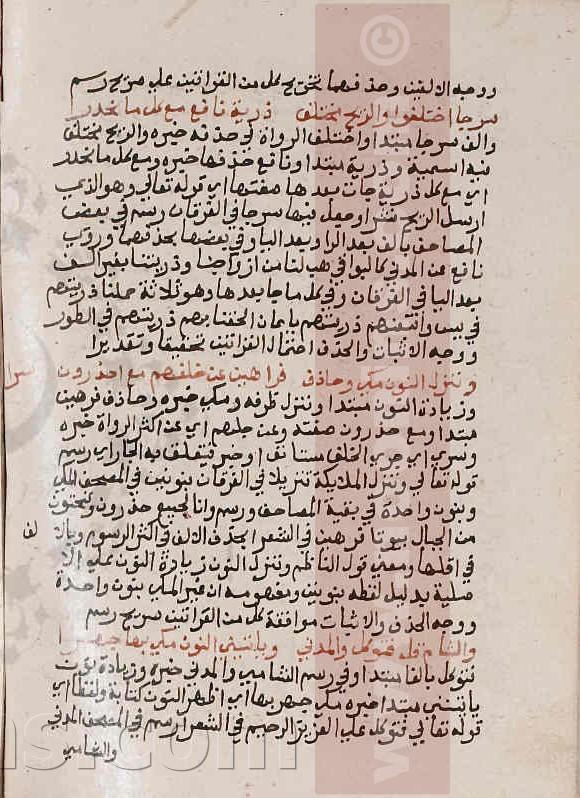 ووجه الالفين وحذفهما تخريج كل من القراتين على صريح رسم
سرجا اختلفوا والريح مختلف ذرية نافع مع كل ما انحدر
والف سرجا مبتدا واختلف الرواة في حذفه خبره والريح مختلف
فيه اسمية وذرية مبتدا ونافع حذفها خبره ومع كل ما انحدر
اي مع كل ذرية جات بعدها صفتها اي قوله تعالي وهو الذي
ارسل الريح نشرا وجعل فيها سرجا في الفرقان رسم في بعض
المصاحف بالف بعد الرا وبعد اليا وفي بعضها بحذفهما وروي
نافع عن المدني كالبواقي هب لنا من ازواجنا وذريتنا بغير الف
بعد اليا في الفرقان وفي كل ما جا بعدها وهو ثلاثة حملنا ذريتهم
في يس واتبعتهم ذريتهم بايمان الحقنا بهم ذريتهم في الطور
ووجه الاثبات والحذف احتمال القراتين تحقيقا وتقديرا
وننزل النون مك وحاذف فرهين عن خلفهم مع حذرون سرا
وزيادة النون مبتدا وننزل ظرفه ومكي خبره وحاذف فرهين
مبتدا ومع حذرون صفته وعن جلهم اي عن اكثر الرواة خبره
وسري اي جري الخلف مستانف او خبر فيتعلق به الجار اي رسم
قوله تعالي وننزل الملايكة تنزيلا في الفرقان بنونين في المصحف المكي
وبنون واحدة في بقية المصاحف ورسم وانا لجميع حذرون وتنحتون
من الجبال بيوتا فرهين في الشعرا بحذف الالف في اكثر الرسوم وبالالف
في اقلها ومعني قول الناظم وننزل النون زيادة النون علي الا
صلية بدليل لفظه بنونين ومفهومه ان غير المكي بنون واحدة
ووجه الحذف والاثبات موافقة كل من القراتين صريح رسم
والشام قل فتوكل والمدني وياتينني النون مكي بها جهرا
فتوكل بالفا مبتدا وفي رسم الشامي والمدني خبره وزيادة نون
ياتينني مبتدا خبره مكي جهر بها اي اظهر النون كتابة ولفظا اي
قوله تعالي فتوكل علي العزيز الرحيم في الشعرا رسم في المصحف المدني
والشامي